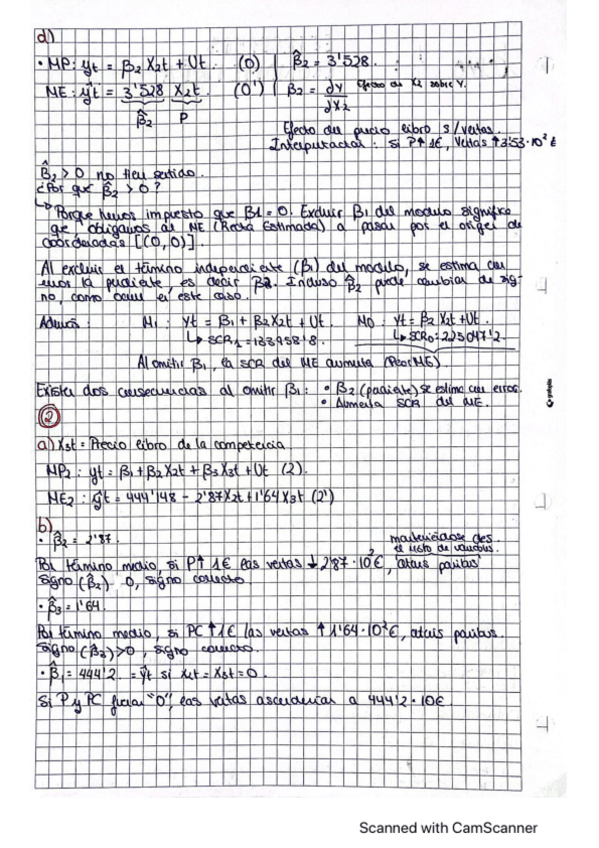 d)
• MP: yt = β2 X2t + Ut (0) β̂2 = 3'528.
ME: ŷt = 3'528 X2t (0') β2 = ∂Y/∂X2 Efecto de X2 sobre Y.
β̂2 P
Efecto del precio libro s/ventas.
Interpretación: Si P↑ 1€, Ventas ↑ 3'53·10² €
β̂2 > 0 no tien sentido.
¿Por qué β̂2 > 0?
↳ Porque hemos impuesto que β1 = 0. Excluir β1 del modelo significa
que, obligamos al ME (Recta Estimada) a pasar por el origen de
coordenadas [(0,0)].
Al excluir el término independiente (β1) del modelo, se estima con
error la pendiente, es decir β2. Incluso β̂2 puede cambiar de sig-
no, como ocurre en este caso.
Además: M1: Yt = β1 + β2X2t + Ut. M0: Yt = β2 X2t + Ut.
↳ SCR1 = 133958'8. ↳ SCR0 = 225047'2.
Al omitir β1, la SCR del ME aumenta (Peor ME).
Existen dos consecuencias al omitir β1: • β2 (pendiente) se estima con error.
• Aumenta SCR del ME.
2
a) X3t = Precio libro de la competencia.
MP2: yt = β1 + β2X2t + β3X3t + Ut (2).
ME2: ŷt = 444'148 - 2'87X2t + 1'64X3t (2')
b)
• β̂2 = 2'87. manteniéndose des.
el resto de variables.
Por término medio, si P↑ 1€ las ventas ↓ 2'87·10² €, "
signo (β̂2) 0, signo correcto
• β̂3 = 1'64.
Por término medio, si PC ↑ 1€ las ventas ↑ 1'64·10² €,
signo (β̂3) > 0, signo correcto.
• β̂1 = 444'2. = ŷt si X2t = X3t = 0.
Si P y PC fueran "0", las ventas ascenderían a 444'2·10€.
Scanned with CamScanner